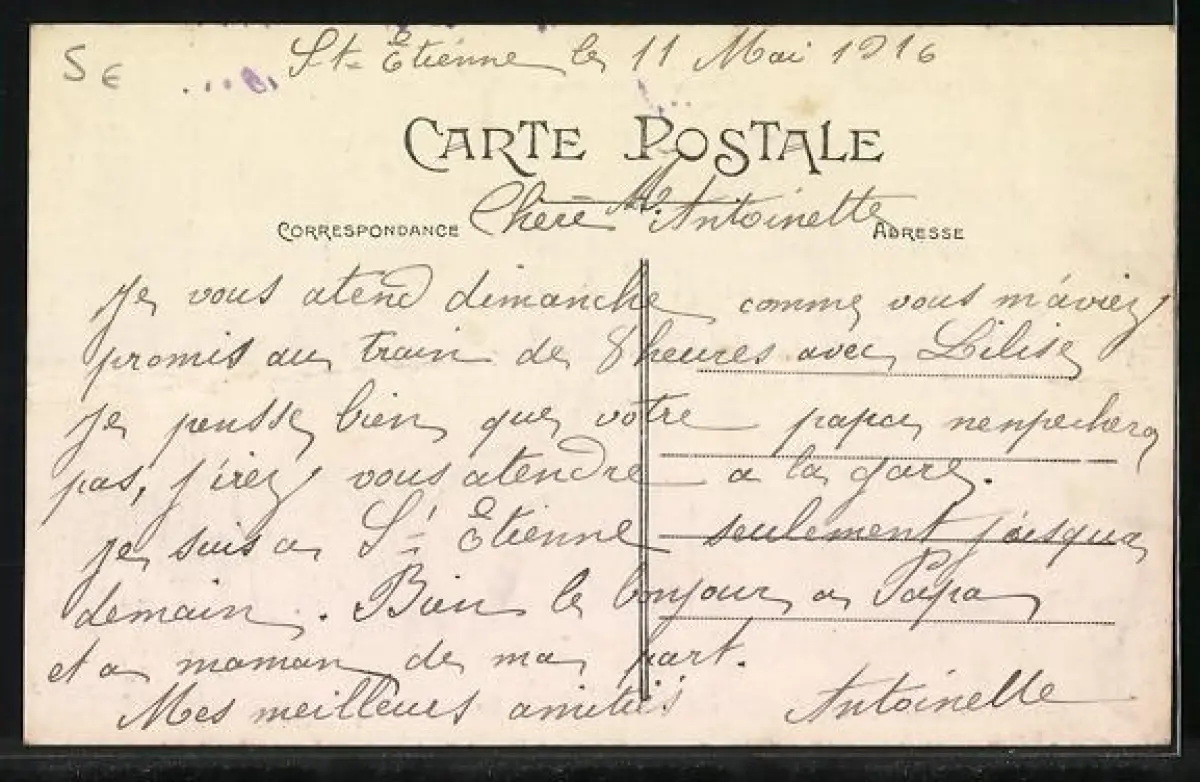 5 €
St-Etienne le 11 Mai 1916
CARTE POSTALE
Chere M. Antoinette
CORRESPONDANCE
ADRESSE
Je vous atend dimanche comme vous m'aviez
promis au train de 8 heures avec Lilise
Je pensse bien que votre papa nenpechera
pas, j'irez vous atendre a la gare.
je suis a St Etienne seulement jusqua
demain. Bien le bonjour a Papa
et a maman de ma part.
Mes meilleurs amitiés Antoinette